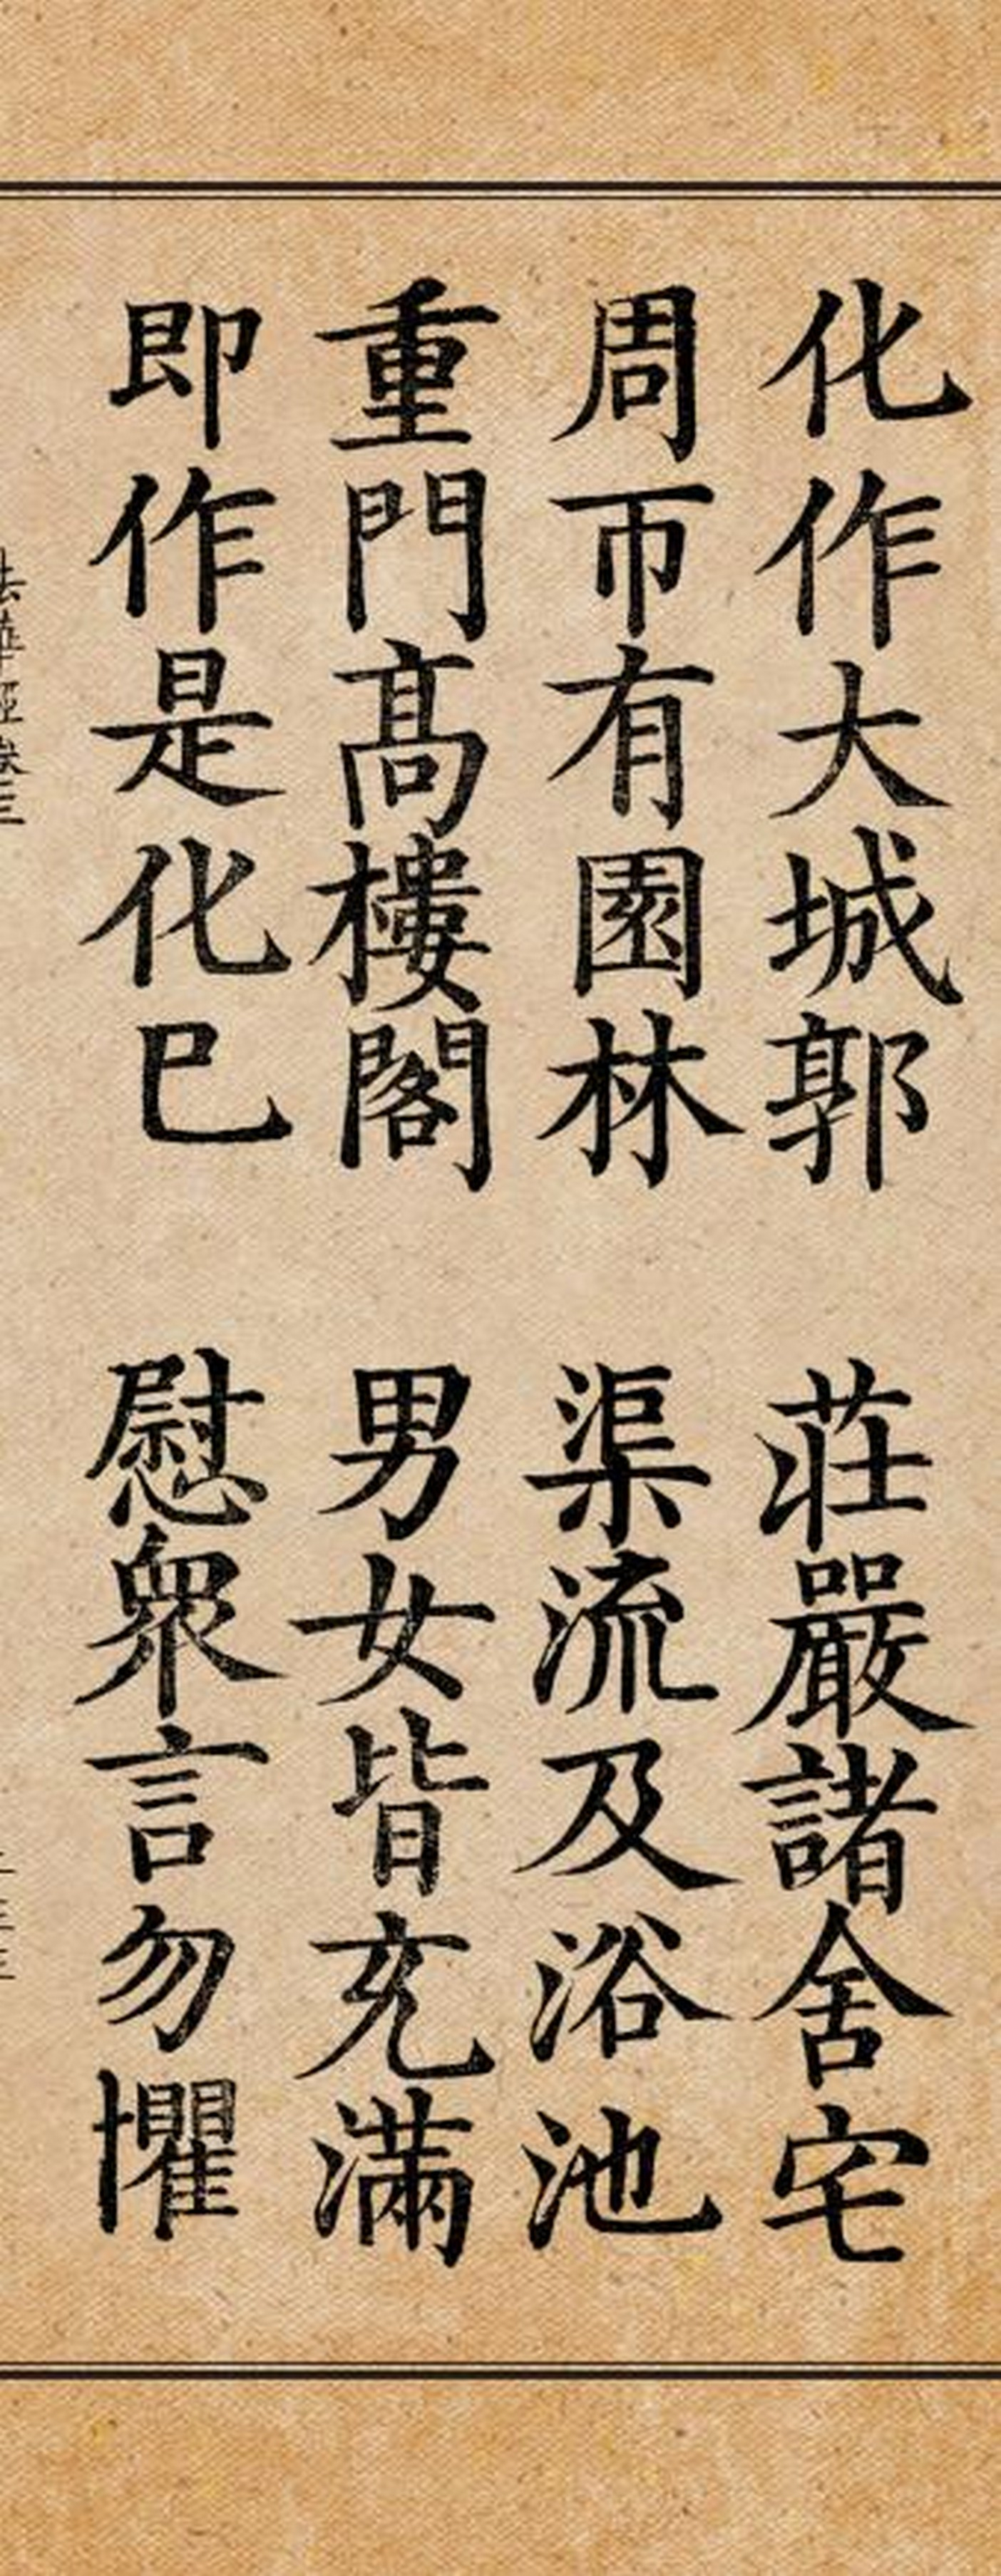 化作大城郭 莊嚴諸舍宅
周帀有園林 渠流及浴池
重門高樓閣 男女皆充滿
即作是化巳 慰衆言勿懼
法華經卷三